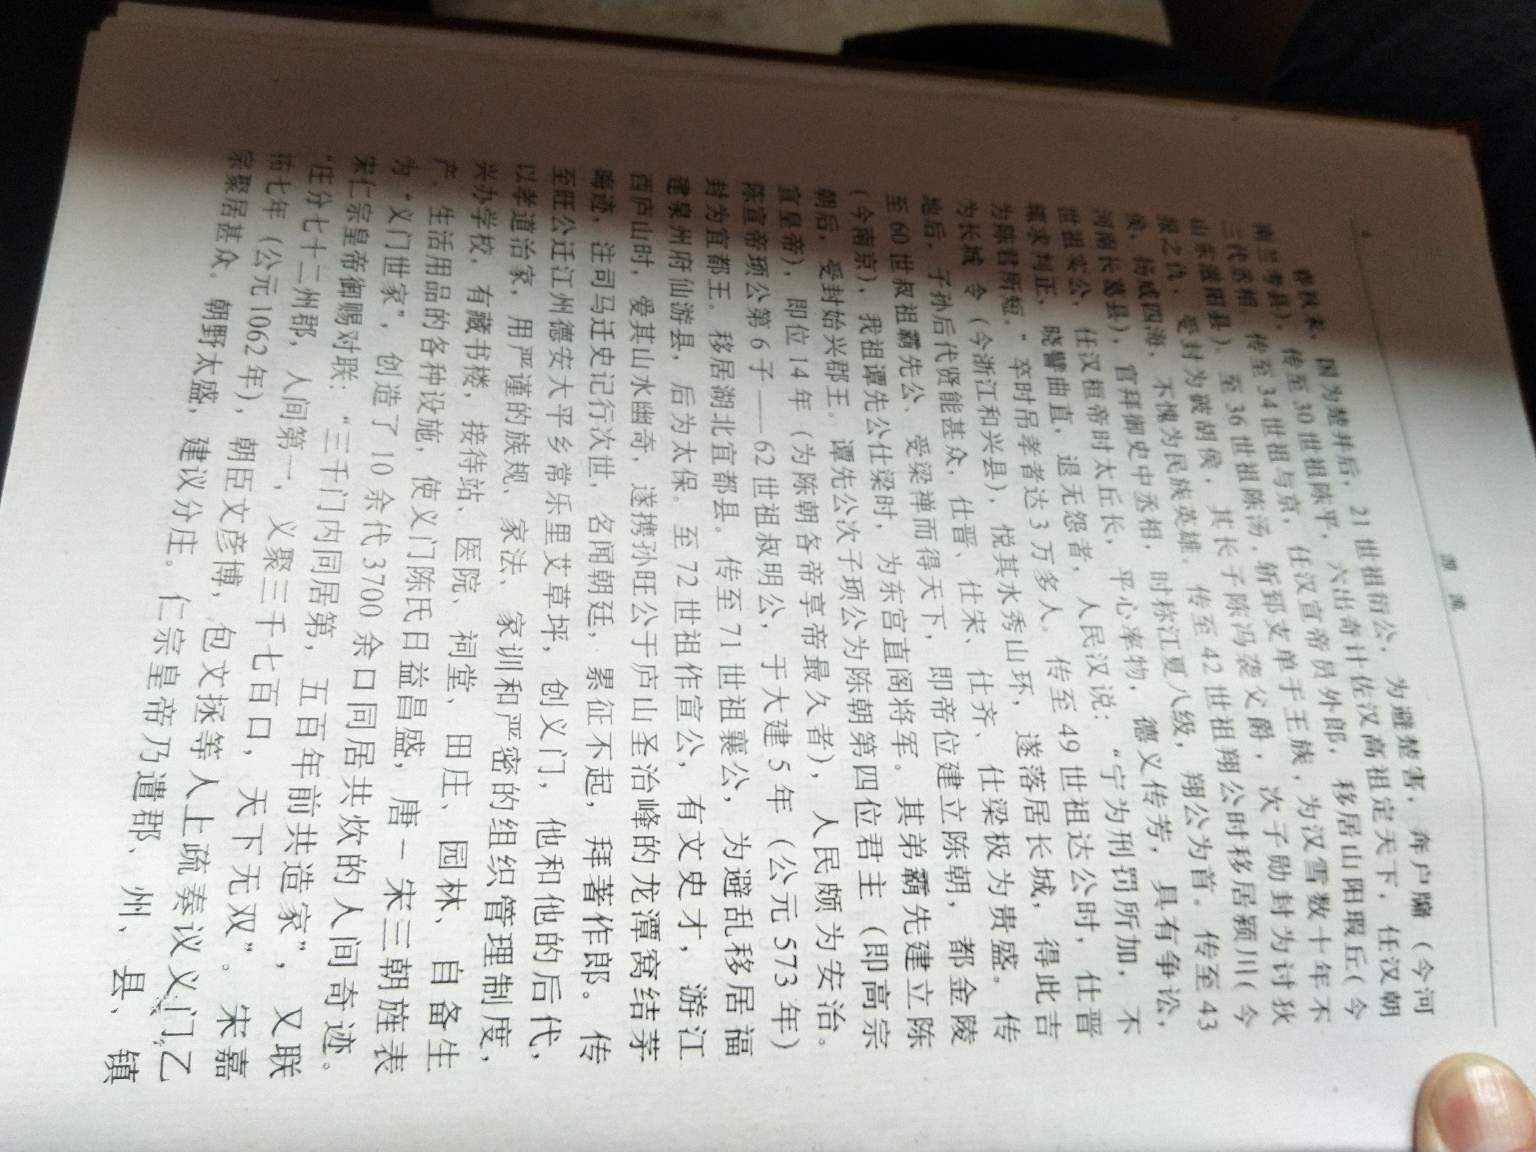 4
源 流
春秋末，因为楚并后，21世祖衍公，为避楚害，奔户牖（今河
南兰考县），传至30世祖陈平，六出奇计佐汉高祖定天下，任汉朝
三代丞相，传至34世祖与京，任汉宣帝员外郎，移居山阳瑕丘（今
山东滋阳县）、至36世祖陈汤，斩郅支单于王族，为汉雪数十年不
报之仇，受封为破胡侯，其长子陈冯袭父爵，次子勋封为讨狄
侯，扬威四海，不愧为民族英雄、传至42世祖翔公时移居颍川（今
河南长葛县），官拜御史中丞相，时称江夏八级，翔公为首。传至43
世祖实公，任汉桓帝时太丘长，平心率物，德义传芳，具有争讼，
辄求判正，晓譬曲直，退无怨者，人民汉说：“宁为刑罚所加，不
为陈君所短。”卒时吊孝者达3万多人。传至49世祖达公时，仕晋
为长城 令（今浙江和兴县），悦其水秀山环，遂落居长城，得此吉
地后，子孙后代贤能甚众，仕晋、仕宋、仕齐、仕梁极为贵盛。传
至60世叔祖霸先公、受梁禅而得天下，即帝位建立陈朝，都金陵
（今南京），我祖谭先公仕梁时，为东宫直阁将军。其弟霸先建立陈
朝后，受封始兴郡王。谭先公次子顼公为陈朝第四位君主（即高宗
宣皇帝），即位14年（为陈朝各帝享帝最久者），人民颇为安治。
陈宣帝顼公第6子——62世祖叔明公，于大建5年（公元573年）
封为宜都王，移居湖北宜都县。传至71世祖襄公，为避乱移居福
建泉州府仙游县，后为太保。至72世祖作宣公，有文史才，游江
西庐山时，爱其山水幽奇，遂携孙旺公于庐山圣治峰的龙潭窝结茅
晦迹，注司马迁史记行次世，名闻朝廷，累征不起，拜著作郎。传
至旺公迁江州德安大平乡常乐里艾草坪，创义门，他和他的后代，
以孝道治家，用严谨的族规、家法、家训和严密的组织管理制度，
兴办学校，有藏书楼，接待站、医院、祠堂、田庄、园林、自备生
产、生活用品的各种设施，使义门陈氏日益昌盛，唐－宋三朝旌表
为“义门世家”，创造了10余代3700余口同居共炊的人间奇迹。
宋仁宗皇帝御赐对联：“三千门内同居第，五百年前共造家”，又联
“庄分七十二州郡，人间第一，义聚三千七百口，天下无双”。宋嘉
祐七年（公元1062年），朝臣文彦博，包文拯等人上疏奏议义门乙
家聚居甚众、朝野太盛，建议分庄。仁宗皇帝乃遣郡、州、县、镇